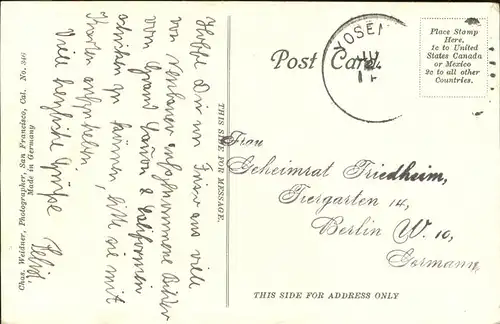 Chas. Weidner, Photographer, San Francisco, Cal. No. 346
Made in Germany
Hoffe Dir im Friar aus viele
von Verbauer aufgenommene Bilder
vom Grand Cañon & Californien
schicken zu können, bitte sie mit
Karten aufzuheben.
Viele herzliche Grüße
THIS SIDE FOR MESSAGE.
Post Card.
YOSEM
Place Stamp
Here,
1c to United
States Canada
or Mexico
2c to all other
Countries.
Frau
Geheimrat Friedheim,
Tiergarten 14,
Berlin W. 10,
Germany
THIS SIDE FOR ADDRESS ONLY